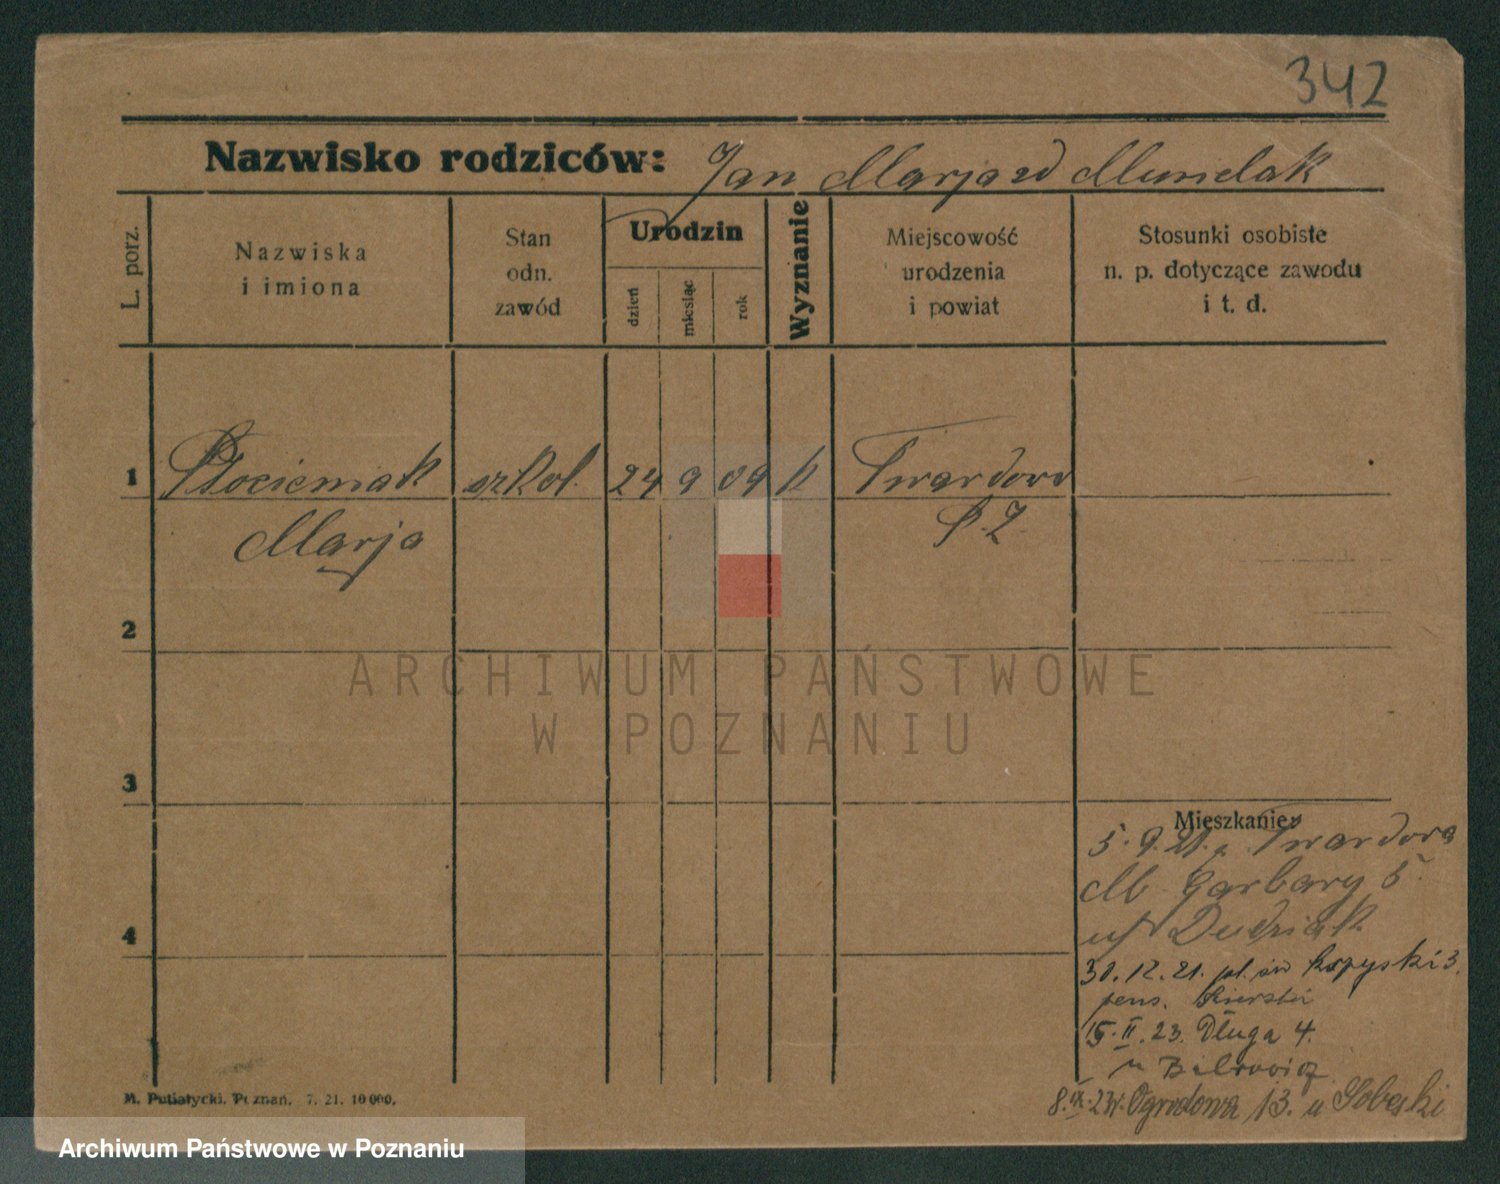 342
Nazwisko rodziców: Jan Marja zd Musielak
L. porz.
Nazwiska
i imiona
Stan
odn.
zawód
Urodzin
dzień
miesiąc
rok
Wyznanie
Miejscowość
urodzenia
i powiat
Stosunki osobiste
n. p. dotyczące zawodu
i t. d.
1 Płocieniak szkol. 24 9 09 k Twardowo
Marja
2
3
4
Mieszkanie
5.9.21. z Twardowa
Garbary 5
Dudziak
30.12.21. pl. św 3.
pens.
15.II.23. Długa 4.
u
8.IX.23r. Ogrodowa 13. u Sobeski
M. Putiatycki. Poznań. 7. 21. 10000.
ARCHIWUM PAŃSTWOWE
W POZNANIU
Archiwum Państwowe w Poznaniu